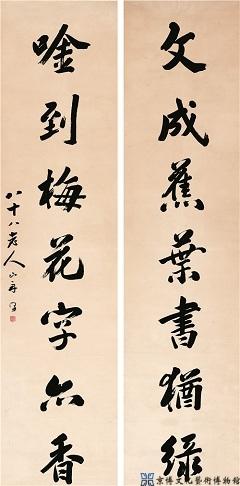 文成蕉葉書猶綠
唫到梅花字亦香
八十八老人山舟書
京博文化藝術博物館